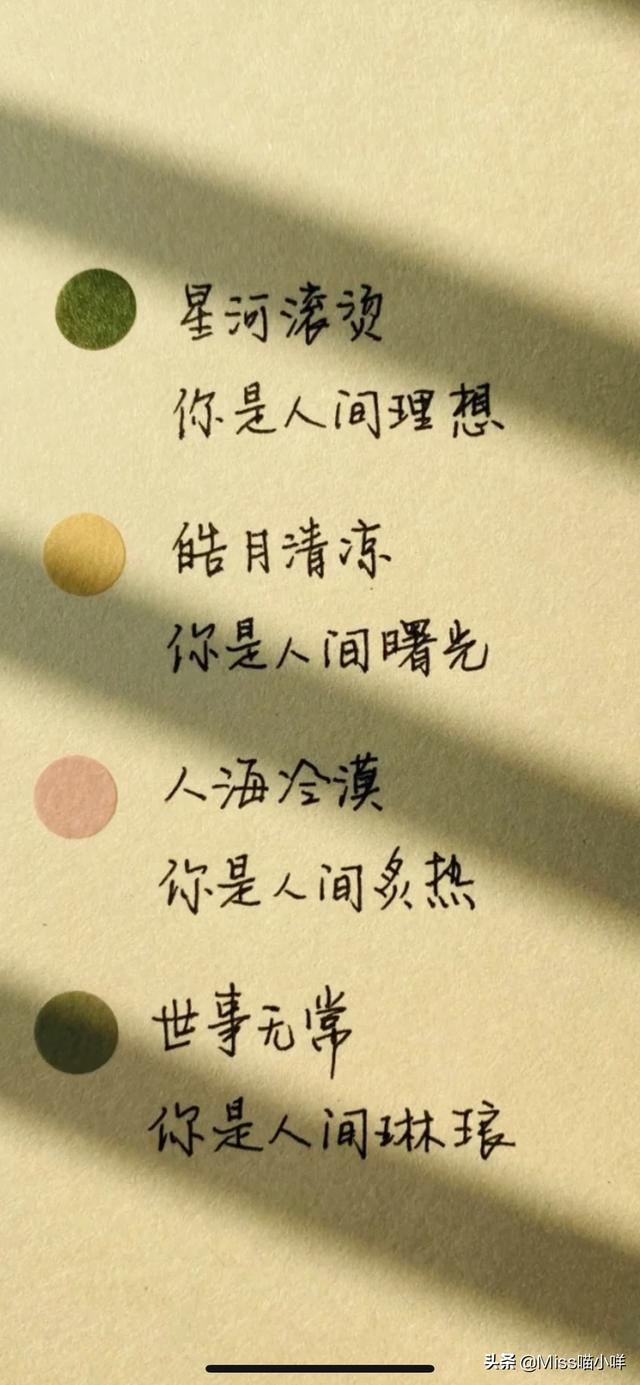 星河滚烫
你是人间理想
皓月清凉
你是人间曙光
人海冷漠
你是人间炙热
世事无常
你是人间琳琅
头条 @Miss喵小咩